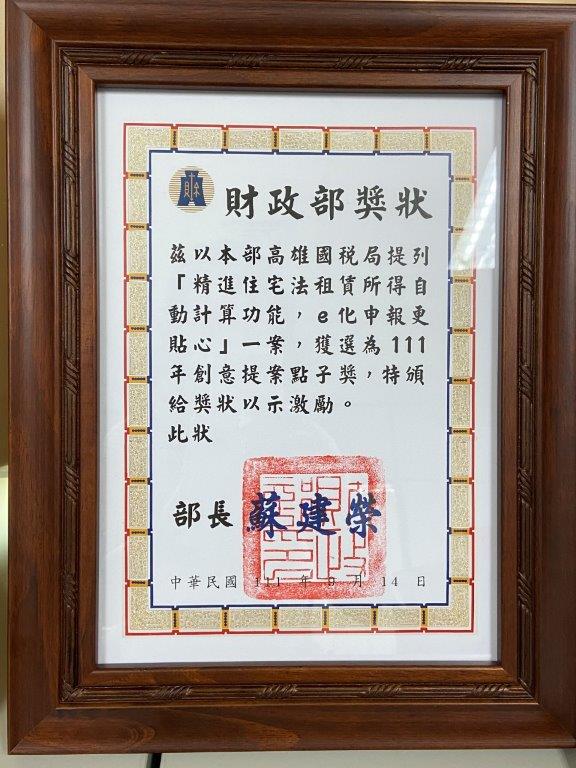 財政部獎狀
茲以本部高雄國稅局提列
「精進住宅法租賃所得自
動計算功能，e化申報更
貼心」一案，獲選為111
年創意提案點子獎，特頒
給獎狀以示激勵。
此狀
部長 蘇建榮
中華民國 111 年 9 月 14 日